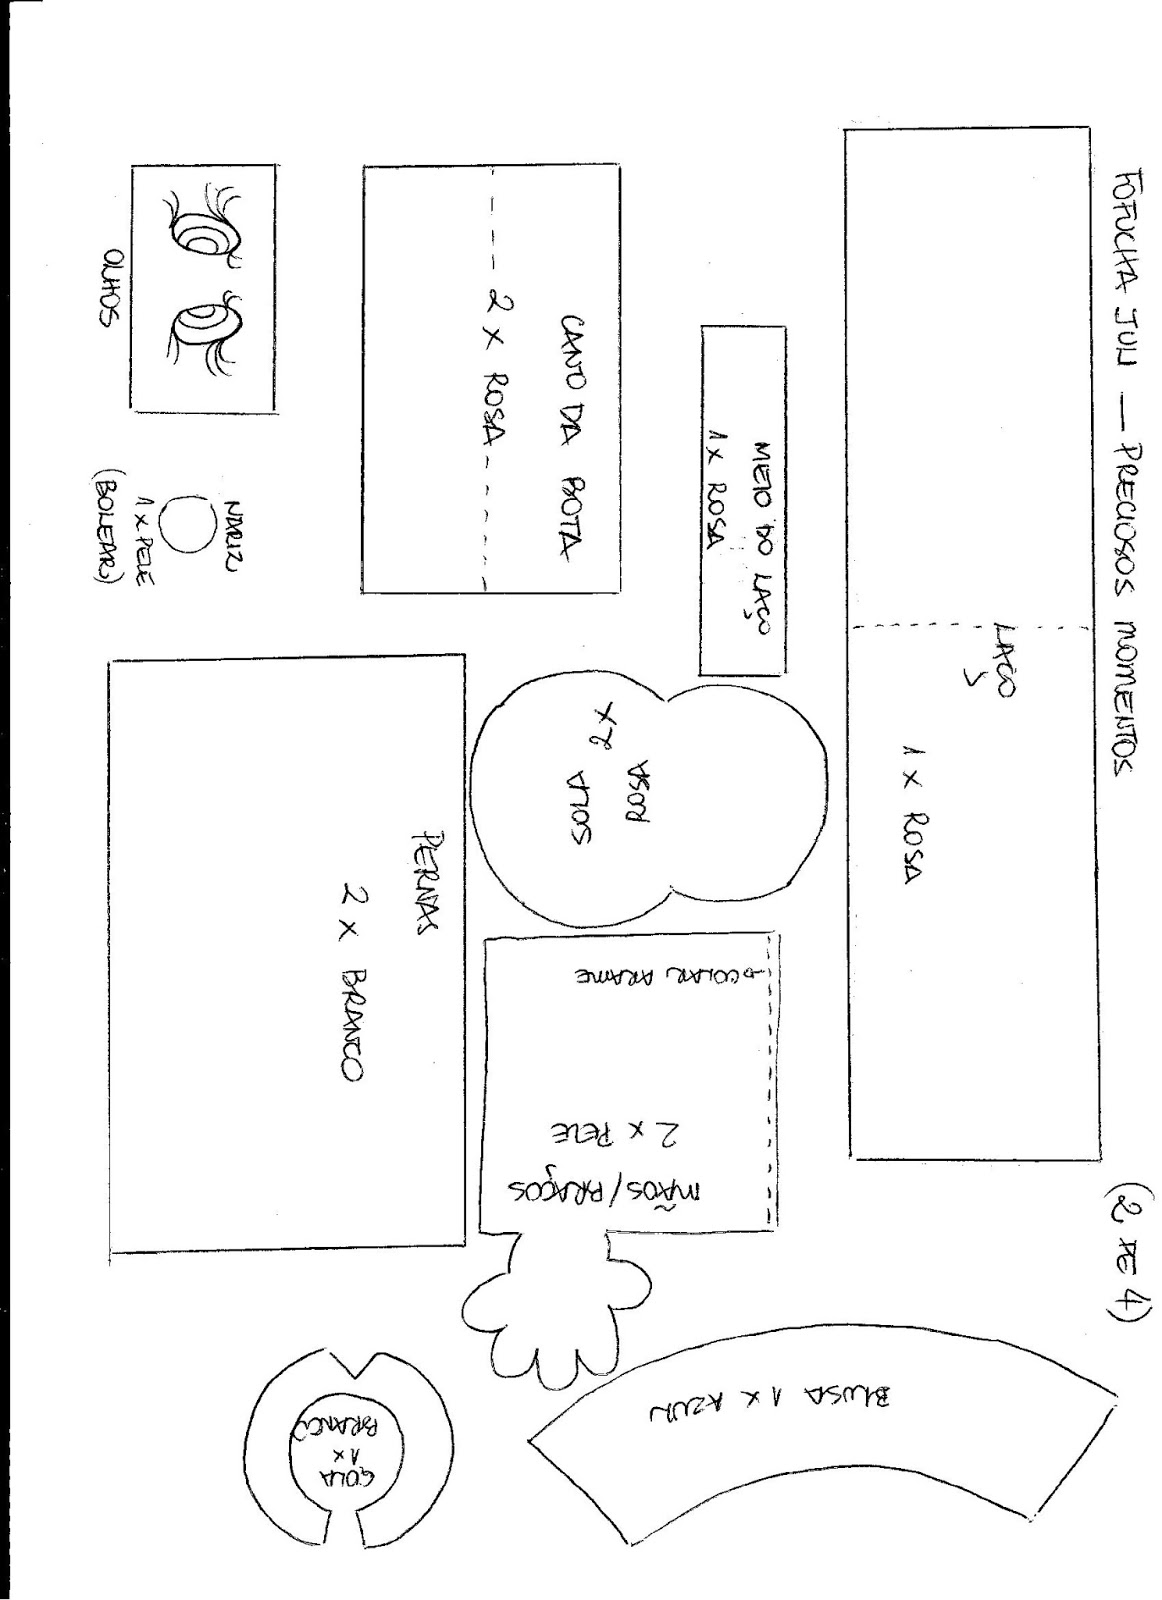 FOFUCHA JULI — PRECIOSOS MOMENTOS (2 DE 4)
LAÇO
1 X ROSA
MEIO DO LAÇO
1 X ROSA
CANO DA BOTA
2 X ROSA
OLHOS
NARIZ
1 X PELE
(BOLEAR)
2X
ROSA
SOLA
PERNAS
2 X BRANCO
COLAR ARAME
2 X PELE
MÃOS/BRAÇOS
BLUSA 1 X AZUL
GOLA
1X
BRANCO